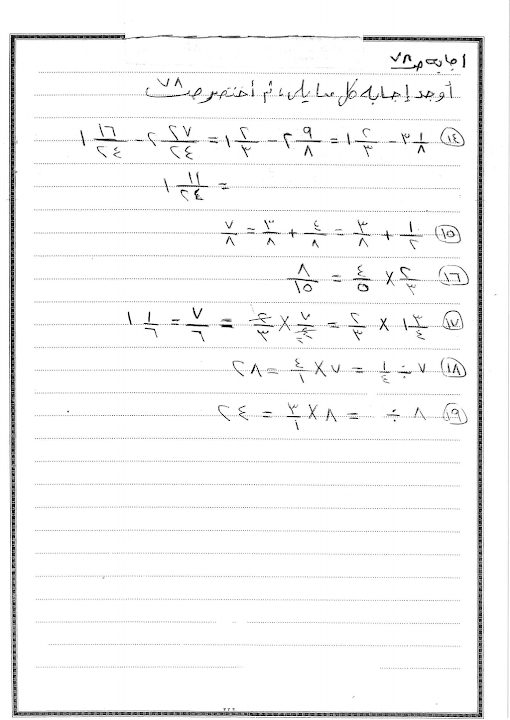 اجابه ص ٧٨
أوجد إجابة كل مما يلي، ثم اختصر ص ٧٨
(١٤) ٣ ١/٨ - ١ ٢/٣ = ٢ ٩/٨ - ١ ٢/٣ = ٢ ٢٧/٢٤ - ١ ١٦/٢٤
= ١ ١١/٢٤
(١٥) ١/٢ + ٣/٨ = ٤/٨ + ٣/٨ = ٧/٨
(١٦) ٢/٣ × ٤/٥ = ٨/١٥
(١٧) ١ ٣/٤ × ٢/٣ = ٧/٤ × ٢/٣ = ٧/٦ = ١ ١/٦
(١٨) ٧ ÷ ١/٤ = ٧ × ٤/١ = ٢٨
(١٩) ٨ ÷ = ٨ × ٣/١ = ٢٤